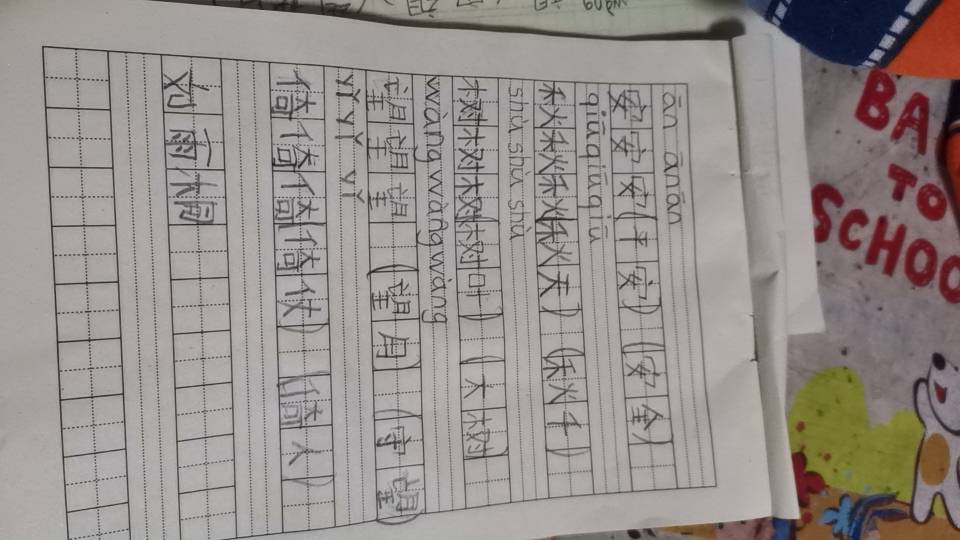 ān ānān
安安安(平安)(安全)
qiūqiūqiū
秋秋秋(秋天)(秋千)
shù shù shù
树树树(树叶)(大树)
wàng wàng wàng
望望望(望月)(守望)
yǐ yǐ yǐ
倚倚倚(倚仗)(倚人)
刘雨桐
BA
TO
SCHOO